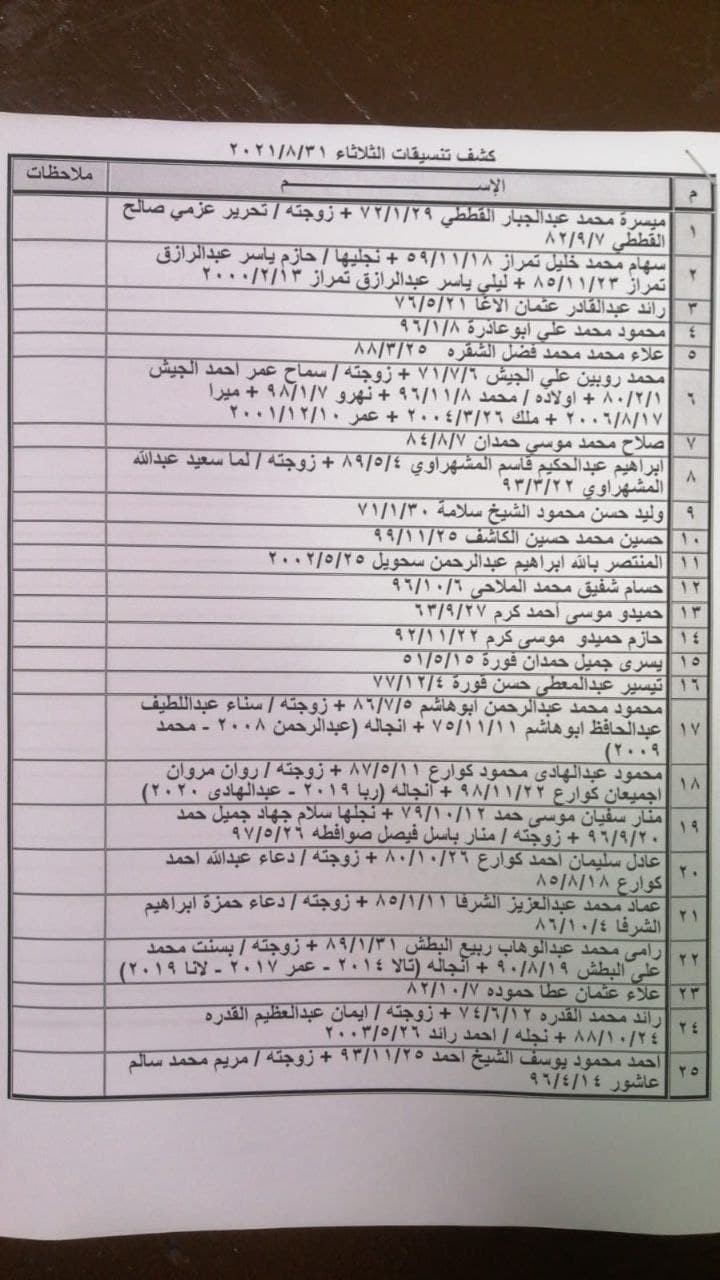 كشف تنسيقات الثلاثاء ٢٠٢١/٨/٣١
م الإســـم ملاحظات
١ ميسرة محمد عبدالجبار القططي ٧٢/١/٢٩ + زوجته / تحرير عزمي صالح
القططي ٨٢/٩/٧
٢ سهام محمد خليل تمراز ٥٩/١١/١٨ + نجليها / حازم ياسر عبدالرازق
تمراز ٨٥/١١/٢٣ + ليلي ياسر عبدالرازق تمراز ٢٠٠٠/٢/١٣
٣ رائد عبدالقادر عثمان الاغا ٧٦/٥/٢١
٤ محمود محمد علي ابوعاذرة ٩٦/١/٨
٥ علاء محمد محمد فضل الشقره ٨٨/٣/٢٥
٦ محمد روبين علي الجيش ٧١/٧/٦ + زوجته / سماح عمر احمد الجيش
٨٠/٢/١ + اولاده / محمد ٩٦/١١/٨ + نهرو ٩٨/١/٧ + ميرا
٢٠٠٦/٨/١٧ + ملك ٢٠٠٤/٣/٢٦ + عمر ٢٠٠١/١٢/١٠
٧ صلاح محمد موسي حمدان ٨٤/٨/٧
٨ ابراهيم عبدالحكيم قاسم المشهراوي ٨٩/٥/٤ + زوجته / لما سعيد عبدالله
المشهراوي ٩٣/٣/٢٢
٩ وليد حسن محمود الشيخ سلامة ٧١/١/٣٠
١٠ حسين محمد حسين الكاشف ٩٩/١١/٢٥
١١ المنتصر بالله ابراهيم عبدالرحمن سحويل ٢٠٠٢/٥/٢٥
١٢ حسام شفيق محمد الملاحى ٩٦/١٠/٦
١٣ حميدو موسى أحمد كرم ٦٣/٩/٢٧
١٤ حازم حميدو موسى كرم ٩٢/١١/٢٢
١٥ يسرى جميل حمدان فورة ٥١/٥/١٥
١٦ تيسير عبدالمعطي حسن فورة ٧٧/١٢/٤
١٧ محمود محمد عبدالرحمن ابوهاشم ٨٦/٧/٥ + زوجته / سناء عبداللطيف
عبدالحافظ ابوهاشم ٧٥/١١/١١ + انجاله (عبدالرحمن ٢٠٠٨ - محمد
٢٠٠٩)
١٨ محمود عبدالهادى محمود كوارع ٨٧/٥/١١ + زوجته / روان مروان
اجميعان كوارع ٩٨/١١/٢٢ + أنجاله (ربا ٢٠١٩ - عبدالهادى ٢٠٢٠)
١٩ منار سفيان موسى حمد ٧٩/١٠/١٢ + نجلها سلام جهاد جميل حمد
٩٦/٩/٢٠ + زوجته / منار باسل فيصل صوافطه ٩٧/٥/٢٦
٢٠ عادل سليمان احمد كوارع ٨٠/١٠/٢٦ + زوجته / دعاء عبدالله احمد
كوارع ٨٥/٨/١٨
٢١ عماد محمد عبدالعزيز الشرفا ٨٥/١/١١ + زوجته / دعاء حمزة ابراهيم
الشرفا ٨٦/١٠/٤
٢٢ رامى محمد عبدالوهاب ربيع البطش ٨٩/١/٣١ + زوجته / بسنت محمد
علي البطش ٩٠/٨/١٩ + أنجاله (تالا ٢٠١٤ - عمر ٢٠١٧ - لانا ٢٠١٩)
٢٣ علاء عثمان عطا حموده ٨٢/١٠/٧
٢٤ رائد محمد القدره ٧٤/٦/١٢ + زوجته / ايمان عبدالعظيم القدره
٨٨/١٠/٢٤ + نجله / احمد رائد ٢٠٠٣/٥/٢٦
٢٥ احمد محمود يوسف الشيخ احمد ٩٣/١١/٢٥ + زوجته / مريم محمد سالم
عاشور ٩٦/٤/١٤